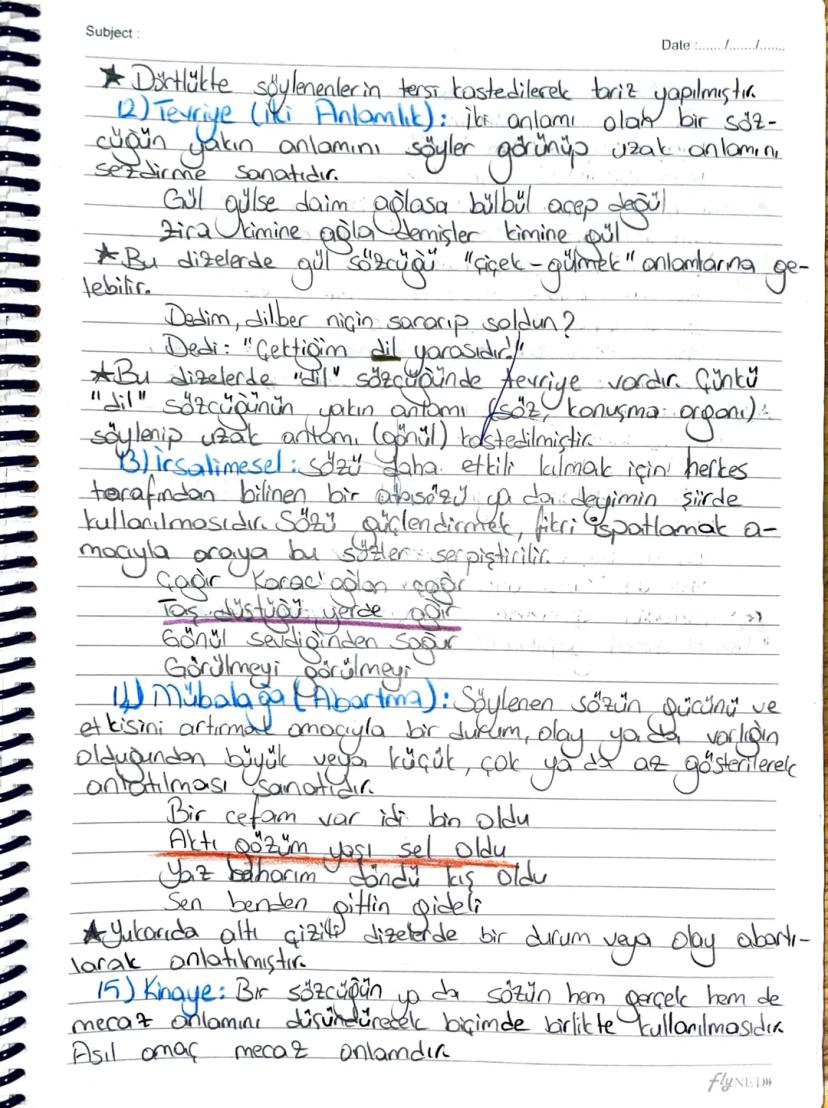 Subject :
Date :....../....../......
★ Dörtlükte söylenenlerin tersi kastedilerek tariz yapılmıştır.
12) Tevriye (İki Anlamlık): iki anlamı olan bir söz-
cüğün yakın anlamını söyler görünüp uzak anlamını
sezdirme sanatıdır.
Gül gülse daim ağlasa bülbül acep değül
Zira kimine ağla demişler kimine gül
★ Bu dizelerde gül sözcüğü "çiçek-gülmek" anlamlarına ge-
lebilir.
Dedim, dilber niçin sararıp soldun?
Dedi: "Çektiğim dil yarasıdır!"
★Bu dizelerde "dil" sözcüğünde tevriye vardır. Çünkü
"dil" sözcüğünün yakın anlamı (söz, konuşma organı)
söylenip uzak anlamı (gönül) kastedilmiştir.
13) İrsalimesel: Sözü daha etkili kılmak için herkes
tarafından bilinen bir atasözü ya da deyimin şiirde
kullanılmasıdır. Sözü güçlendirmek, fikri ispatlamak a-
macıyla araya bu sözler serpiştirilir.
Çağır Karac'oğlan çağır
Taş düştüğü yerde ağır
Gönül sevdiğinden soğur
Görülmeyi görülmeyi
14) Mübalağa (Abartma): Söylenen sözün gücünü ve
etkisini artırmak amacıyla bir durum, olay ya da varlığın
olduğundan büyük veya küçük, çok ya da az gösterilerek
anlatılması sanatıdır.
Bir cefam var idi bin oldu
Aktı gözüm yaşı sel oldu
Yaz baharım döndü kış oldu
Sen benden gittin gideli
★Yukarıda altı çizili dizelerde bir durum veya olay abartı-
larak anlatılmıştır.
15) Kinaye: Bir sözcüğün ya da sözün hem gerçek hem de
mecaz anlamını düşündürecek biçimde birlikte kullanılmasıdır.
Asıl amaç mecaz anlamdır.
flyNET